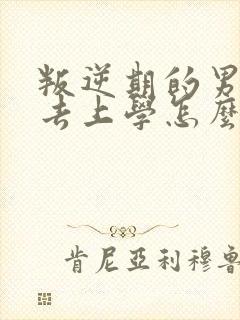 叛逆期的男
去上學怎麼
肯尼亞利穆魯